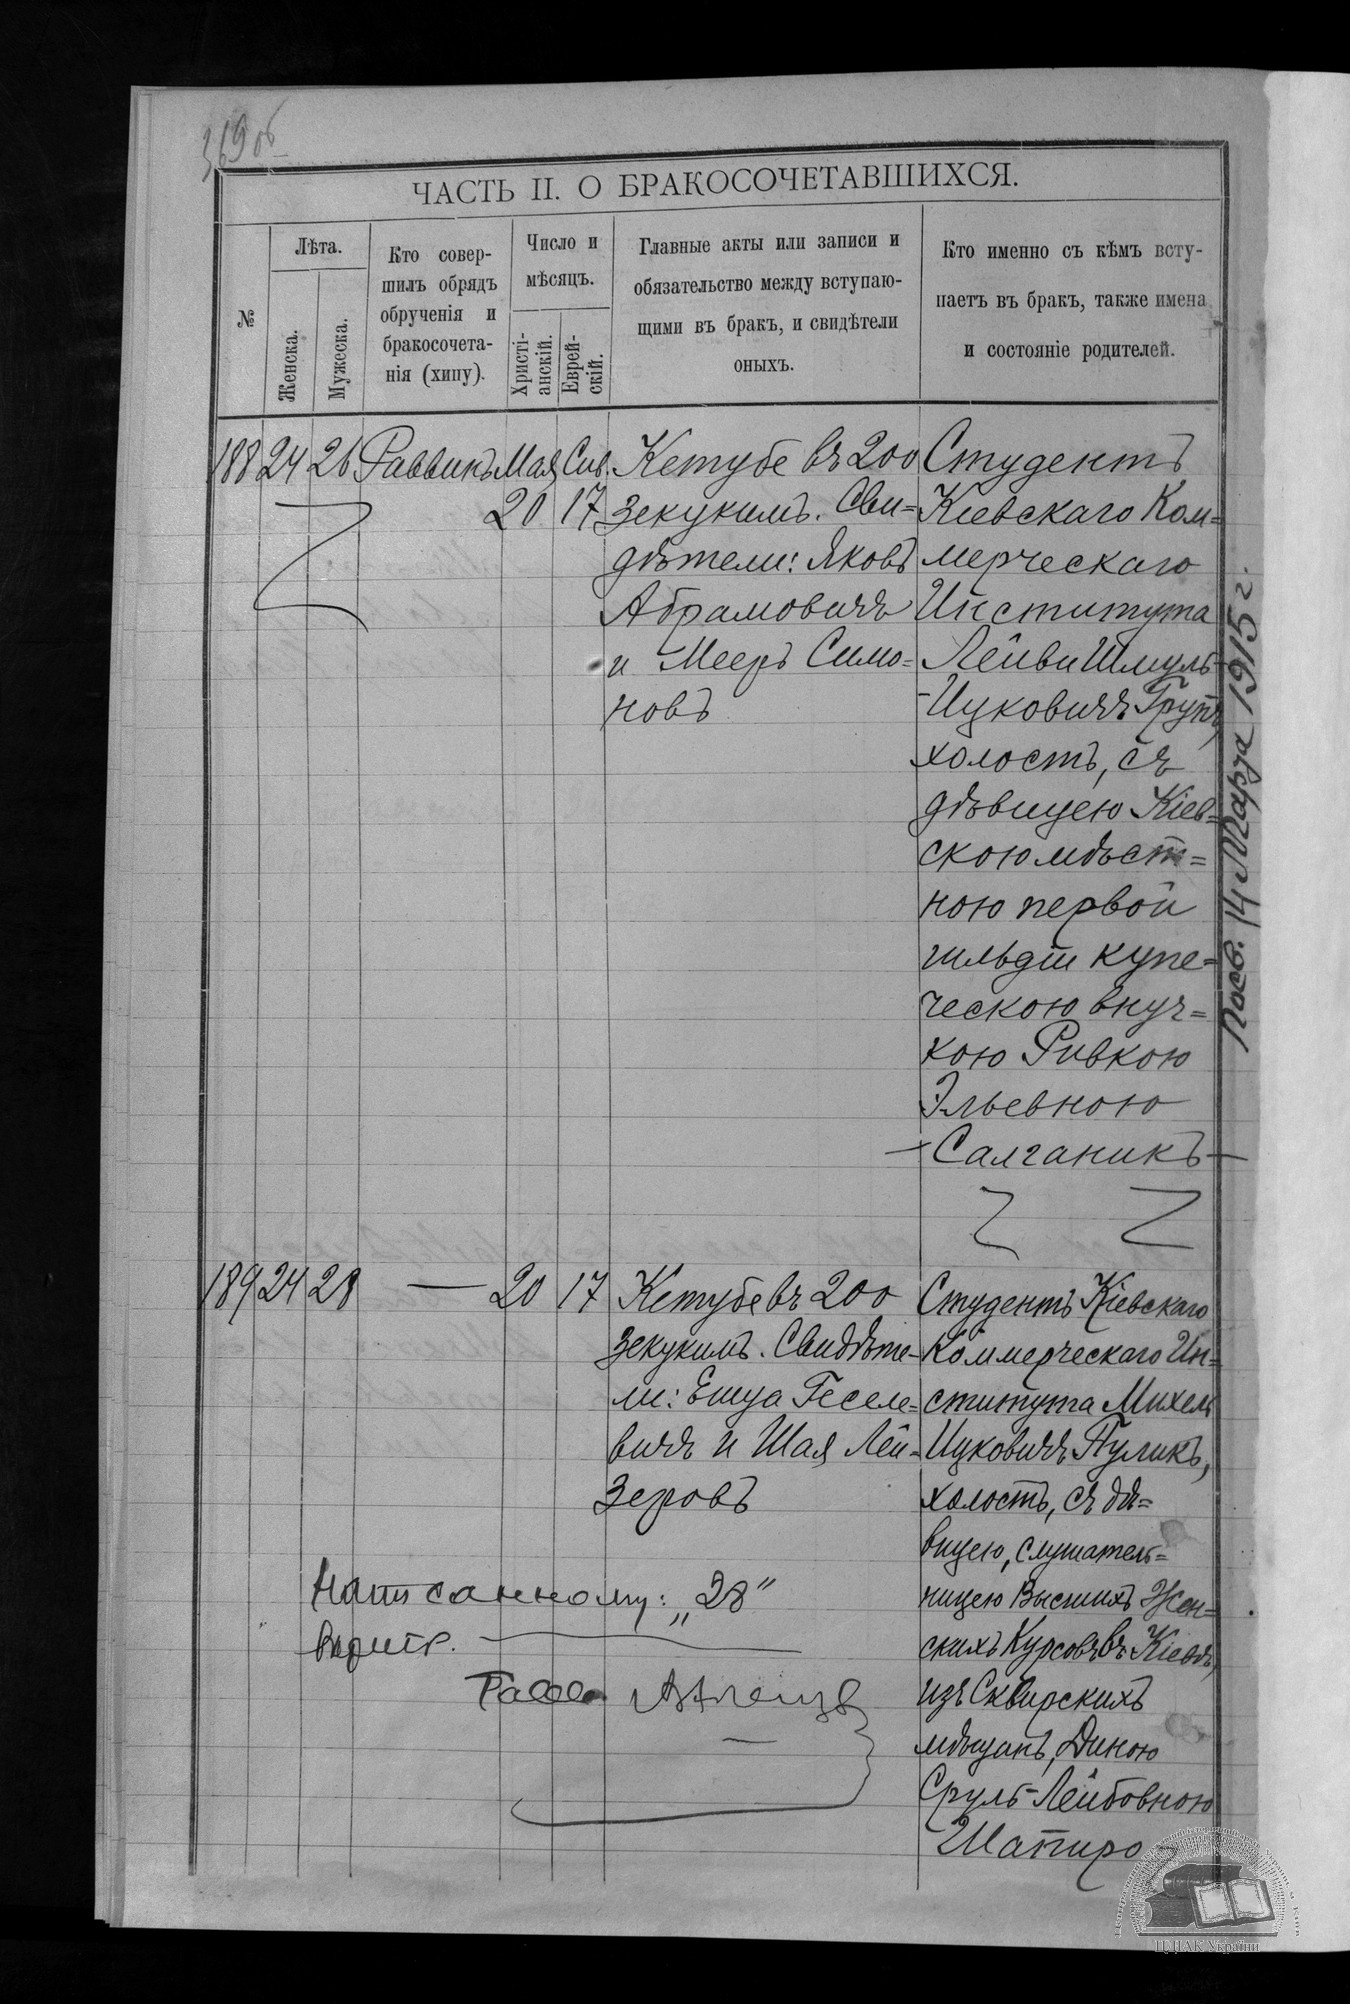 369 об
ЧАСТЬ II. О БРАКОСОЧЕТАВШИХСЯ.
№
Лѣта.
Женска.
Мужеска.
Кто совер-
шилъ обрядъ
обрученія и
бракосочета-
нія (хипу).
Число и
мѣсяцъ.
Христі-
анскій.
Еврей-
скій.
Главные акты или записи и
обязательство между вступаю-
щими въ бракъ, и свидѣтели
оныхъ.
Кто именно съ кѣмъ всту-
паетъ въ бракъ, также имена
и состояніе родителей.
188 24 26 Раввинъ Мая Сив.
20 17
Кетубе въ 200
зекукимъ. Сви=
дѣтели: Яковъ
Абрамовичъ
и Мееръ Симо=
новъ
Студентъ
Кіевскаго Ком=
мерческаго
Института
Лейви Шмуль-
-Ицковичъ
холостъ, съ
дѣвицею Кіев=
скою мѣст=
ною первой
гильдіи купе=
ческою внуч=
кою Ривкою
Эльевною
Салганикъ
189 24 28 — 20 17
Кетубе въ 200
зекукимъ. Свидѣте-
ли: Ешуа Геселе=
вичъ и Шая Лей-
зеровъ
Студентъ Кіевскаго
Коммерческаго Ин=
ститута Михель
Ицковичъ Пуликъ,
холостъ, съ дѣ=
вицею, слушатель=
ницею Высшихъ Жен=
скихъ Курсовъ въ Кіевѣ,
изъ Сквирскихъ
мѣщанъ, Диною
Сруль-Лейбовною
Шапиро
Написанному: „28"
вѣрить.
Посв. 14 Марта 1915 г.
ЦДІАК України